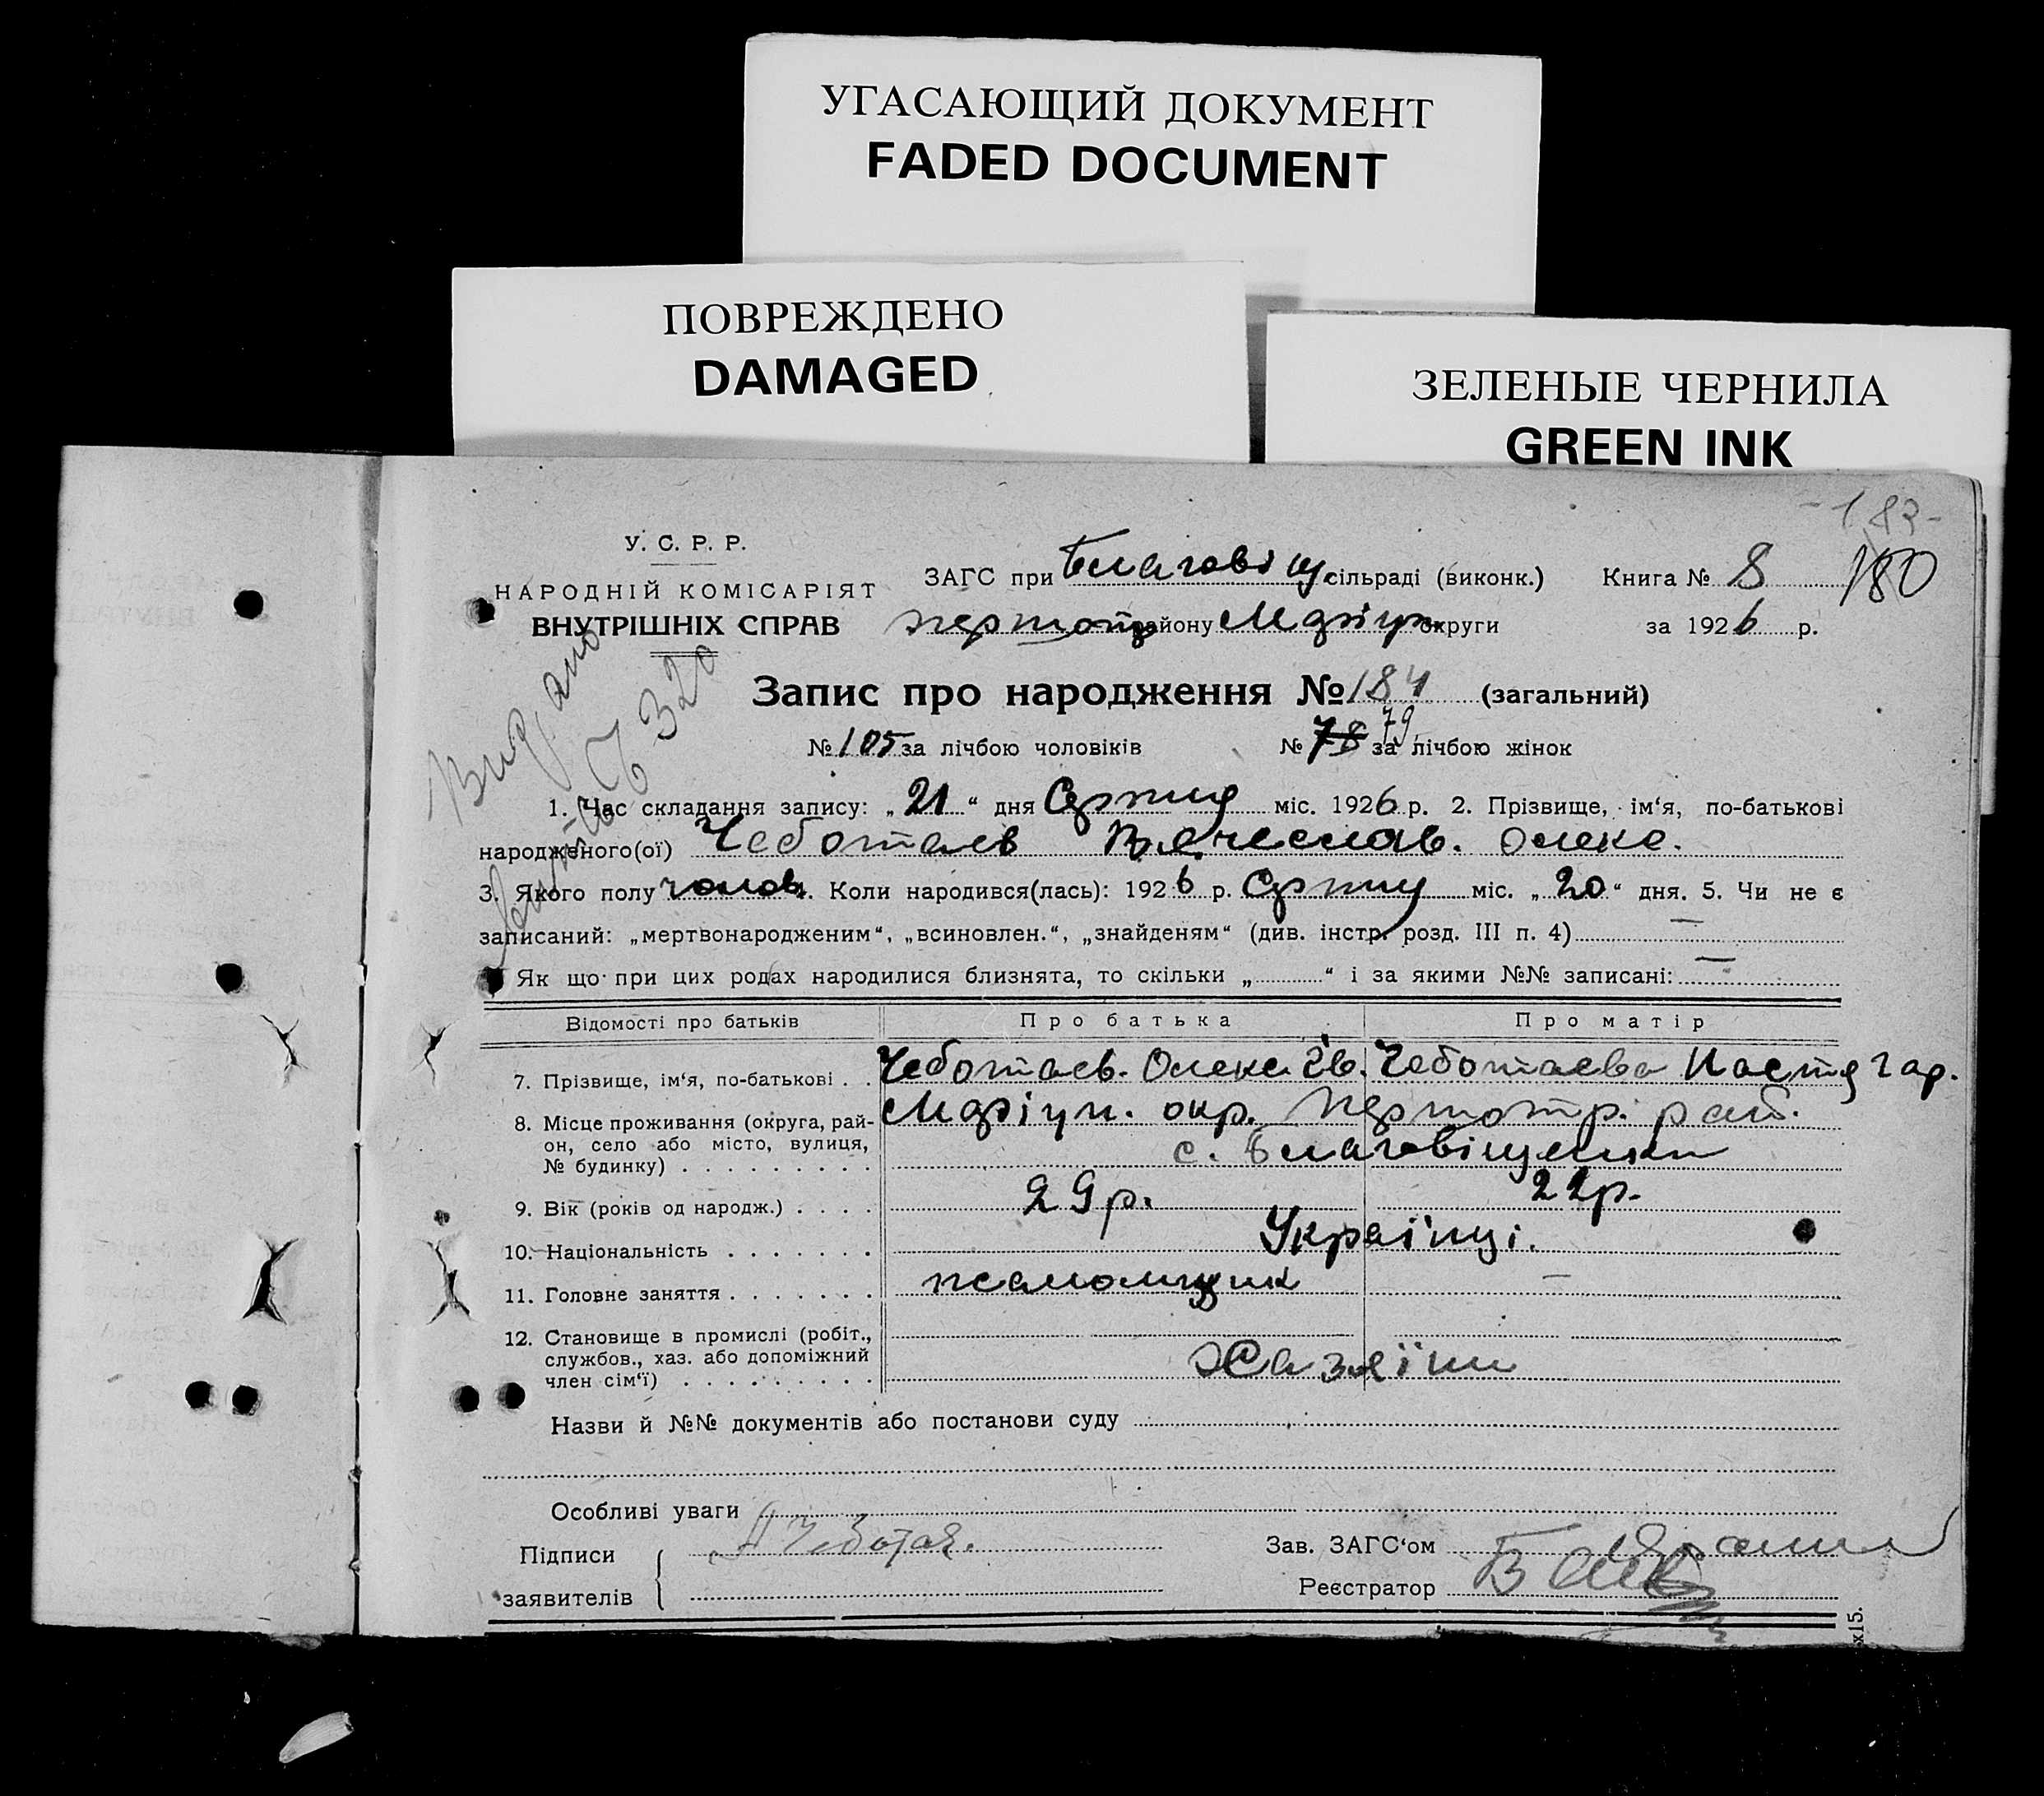 УГАСАЮЩИЙ ДОКУМЕНТ
FADED DOCUMENT
ПОВРЕЖДЕНО
DAMAGED
ЗЕЛЕНЫЕ ЧЕРНИЛА
GREEN INK
-183-
У. С. Р. Р.
НАРОДНІЙ КОМІСАРІЯТ
ВНУТРІШНІХ СПРАВ
ЗАГС при Благовіщ. сільраді (виконк.) Книга № 8 180
району округи за 1926 р.
Видано
320
Запис про народження № 184 (загальний)
№ 105 за лічбою чоловіків № 78 79 за лічбою жінок
1. Час складання запису: „21“ дня Серпня міс. 1926 р. 2. Прізвище, ім‘я, по-батькові
народженого(ої) Чеботаєв Вячеслав. Олекс.
3. Якого полу чолов. 4. Коли народився(лась): 1926 р. Серпня міс. „20“ дня. 5. Чи не є
записаний: „мертвонародженим“, „всиновлен.“, „знайденям“ (див. інстр. розд. III п. 4) —
Як що при цих родах народилися близнята, то скільки „ “ і за якими №№ записані: —
Відомості про батьків Про батька Про матір
7. Прізвище, ім‘я, по-батькові . . Чеботаєв. Олекс. Ів. Чеботаєва Настя Гар.
8. Місце проживання (округа, рай-
он, село або місто, вулиця,
№ будинку) . . . . . . . . .
окр. рай.
с. Благовіщенки
9. Вік (років од народж.) . . . . 29 р. 22 р.
10. Національність . . . . . . . Українці.
11. Головне заняття . . . . . . . —
12. Становище в промислі (робіт.,
службов., хаз. або допоміжний
член сім‘ї) . . . . . . . . .
Хазяїни
Назви й №№ документів або постанови суду
Особливі уваги
Підписи
заявителів
Чеботая.
Зав. ЗАГС‘ом
Реєстратор
х15.